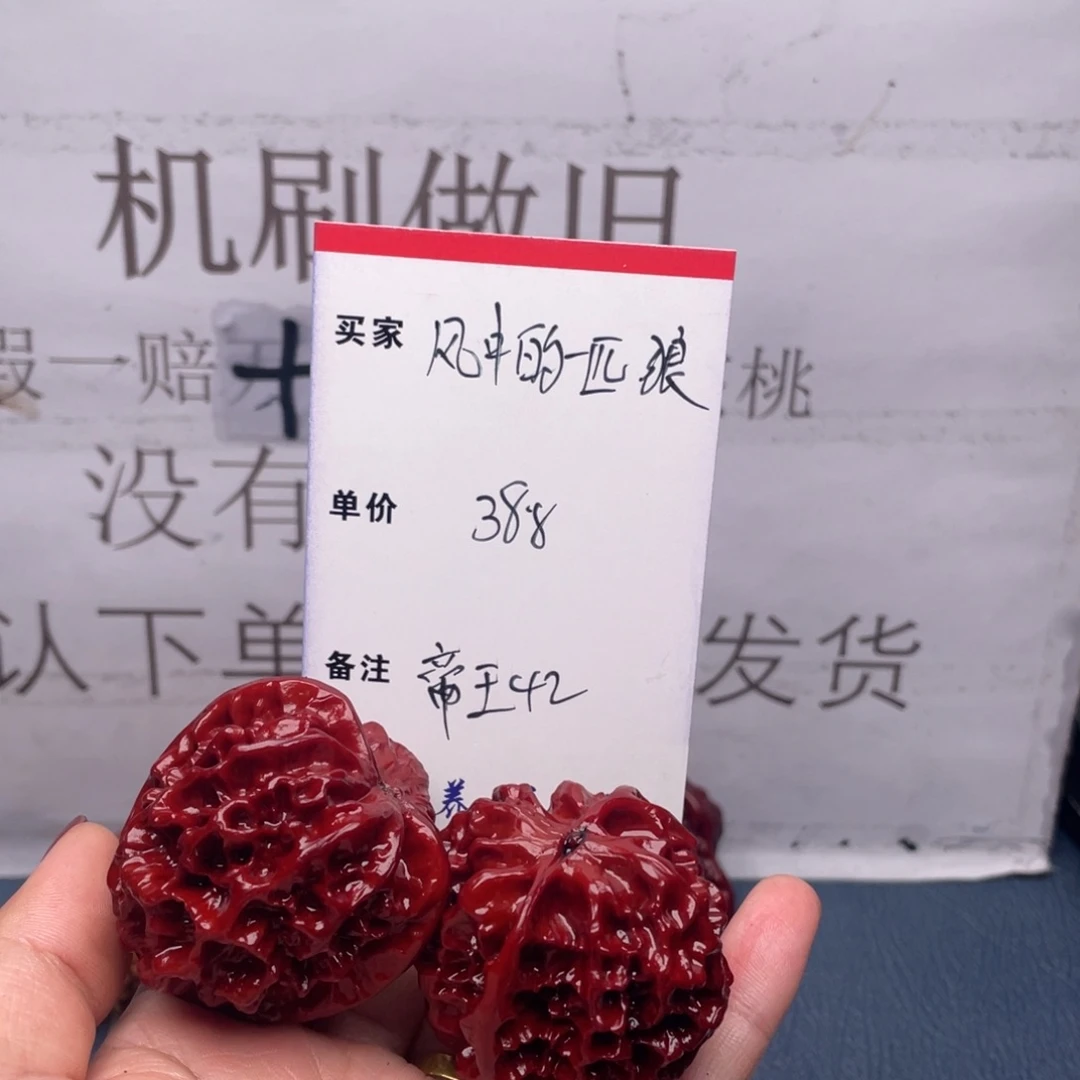 机刷做旧
假一赔十 核桃
没有
认下单 发货
买家 风中的一匹狼
单价 388
备注 帝王42
养